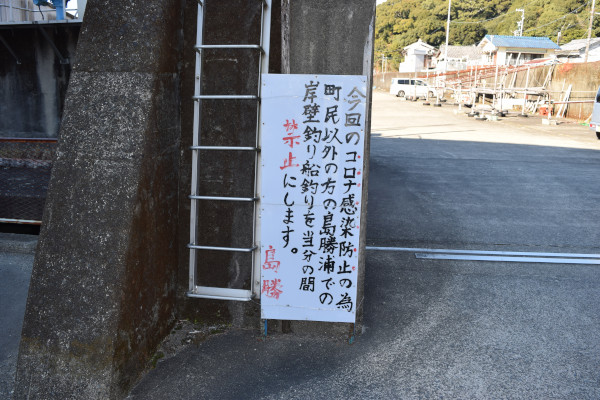 今回のコロナ感染防止の為
町民以外の方の島勝浦での
岸壁釣り船釣りを当分の間
禁止にします。
島勝